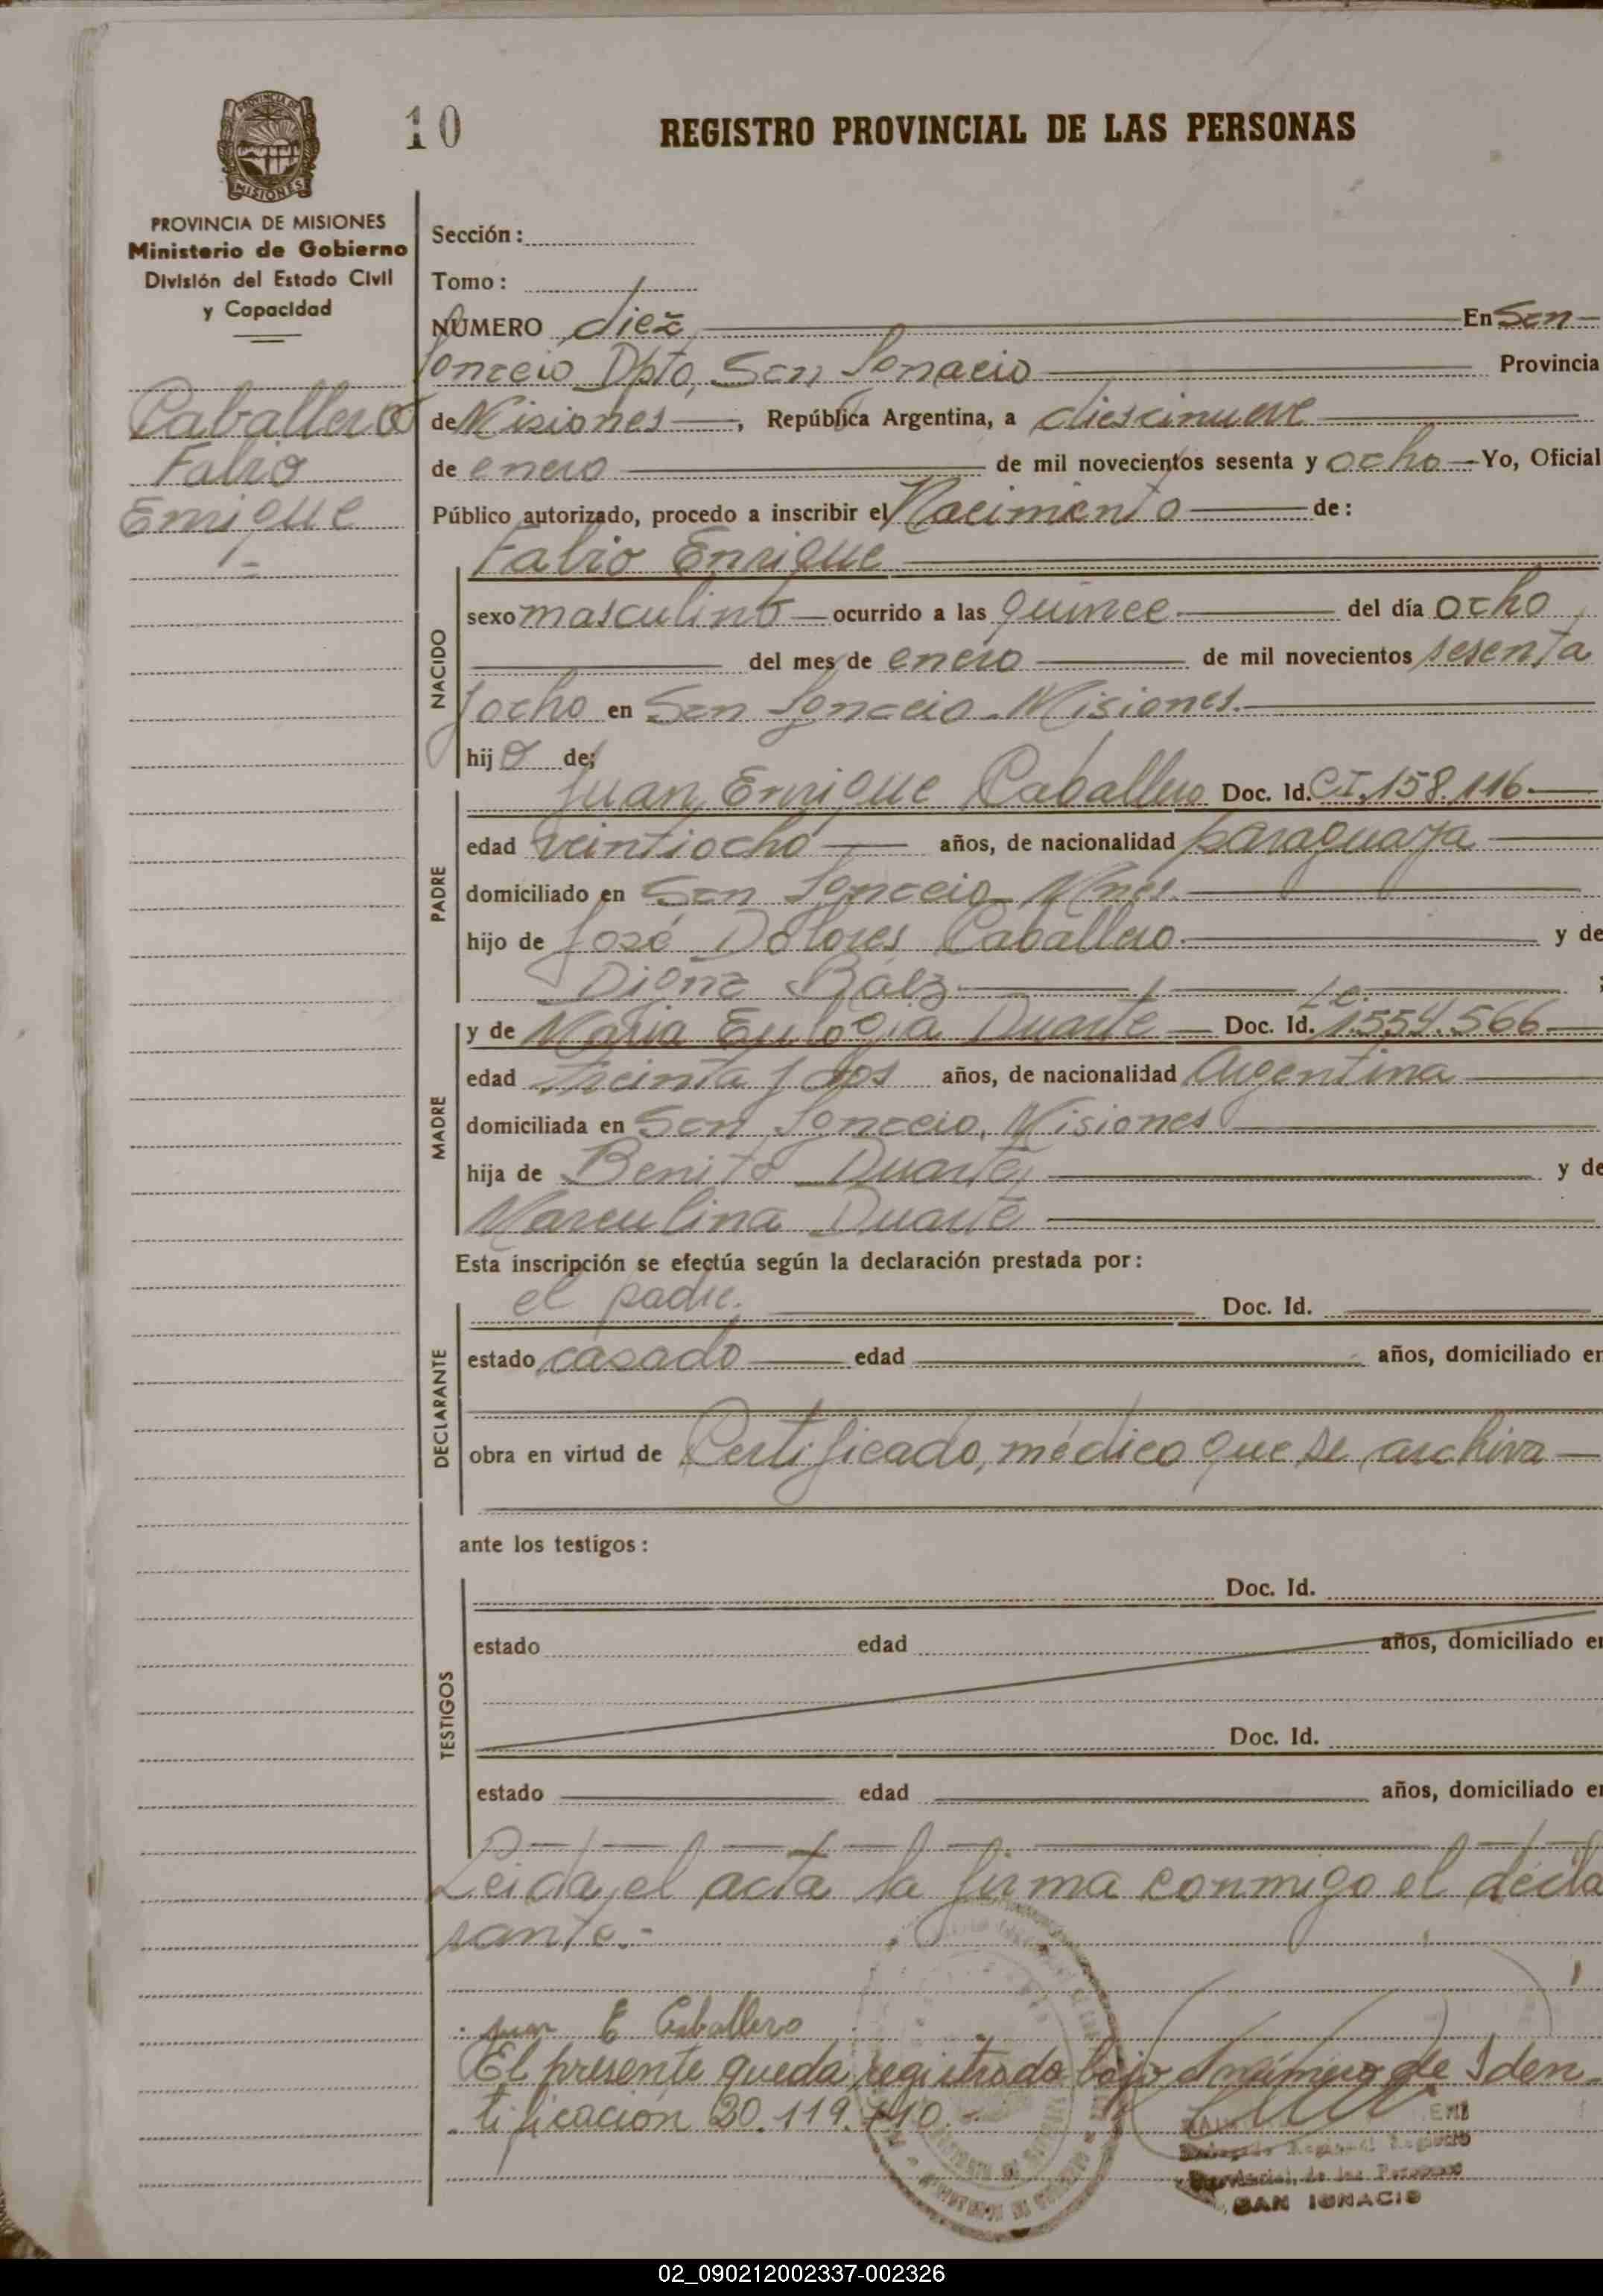 10
REGISTRO PROVINCIAL DE LAS PERSONAS
PROVINCIA DE MISIONES
MISIONES
PROVINCIA DE MISIONES
Ministerio de Gobierno
División del Estado Civil
y Capacidad
Caballero
Fabio
Enrique
Sección:
Tomo:
NÚMERO diez En San
Ignacio Dpto, San Ignacio Provincia
de Misiones, República Argentina, a diescinueve
de enero de mil novecientos sesenta y ocho Yo, Oficial
Público autorizado, procedo a inscribir el Nacimiento de:
NACIDO
Fabio Enrique
sexo masculino ocurrido a las quince del día ocho
del mes de enero de mil novecientos sesenta
y ocho en San Ignacio - Misiones.
hijo de;
PADRE
Juan Enrique Caballero Doc. Id. C.I. 158.116.
edad veintiocho años, de nacionalidad paraguaya
domiciliado en San Ignacio Mnes.
hijo de José Dolores Caballero y de
Baez ;
MADRE
y de Maria Eulogia Duarte Doc. Id. L.C. 1.554.566
edad treinta y dos años, de nacionalidad Argentina
domiciliada en San Ignacio, Misiones
hija de Benito Duarte, y de
Marculina Duarte
Esta inscripción se efectúa según la declaración prestada por:
DECLARANTE
el padre. Doc. Id.
estado casado edad años, domiciliado en
obra en virtud de Certificado, médico que se archiva
ante los testigos:
TESTIGOS
Doc. Id.
estado edad años, domiciliado en
Doc. Id.
estado edad años, domiciliado en
Leida, el acta la firma conmigo el decla
rante.-
Juan E Caballero
El presente queda registrado bajo el número de Iden-
tificación 20.119.
Provincial, de las Personas
SAN IGNACIO
02_090212002337-002326